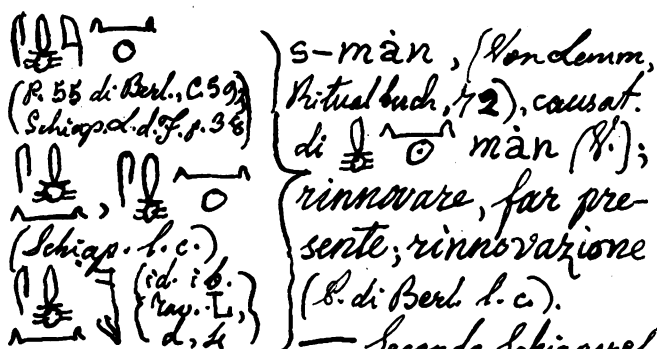 (P. 55 di Berl., C. 59,
Schiap. L. d. F. p. 38)
(Schiap. l. c.)
(id. ib.
Tav. L,
d, 4)
s-màn, (Von Lemm,
Ritualbuch, 72), causat.
di màn (V.);
rinnovare, far pre-
sente; rinnovazione
(P. di Berl. l. c.).
— Secondo